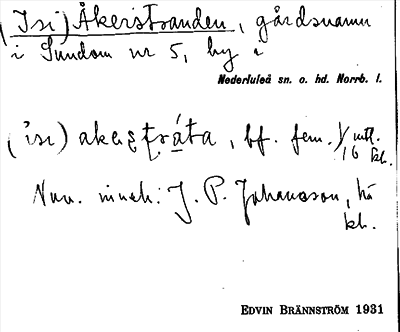 (Isi) Åkerstranden, gårdsnamn
i Sundom nr 5, by i
Nederluleå sn. o. hd. Norrb. l.
('isi) akeʂtráta, bf. fem. 1/16 utt. kh.
Nuv. inneh: J. P. Johansson, hå
kh.
EDVIN BRÄNNSTRÖM 1931